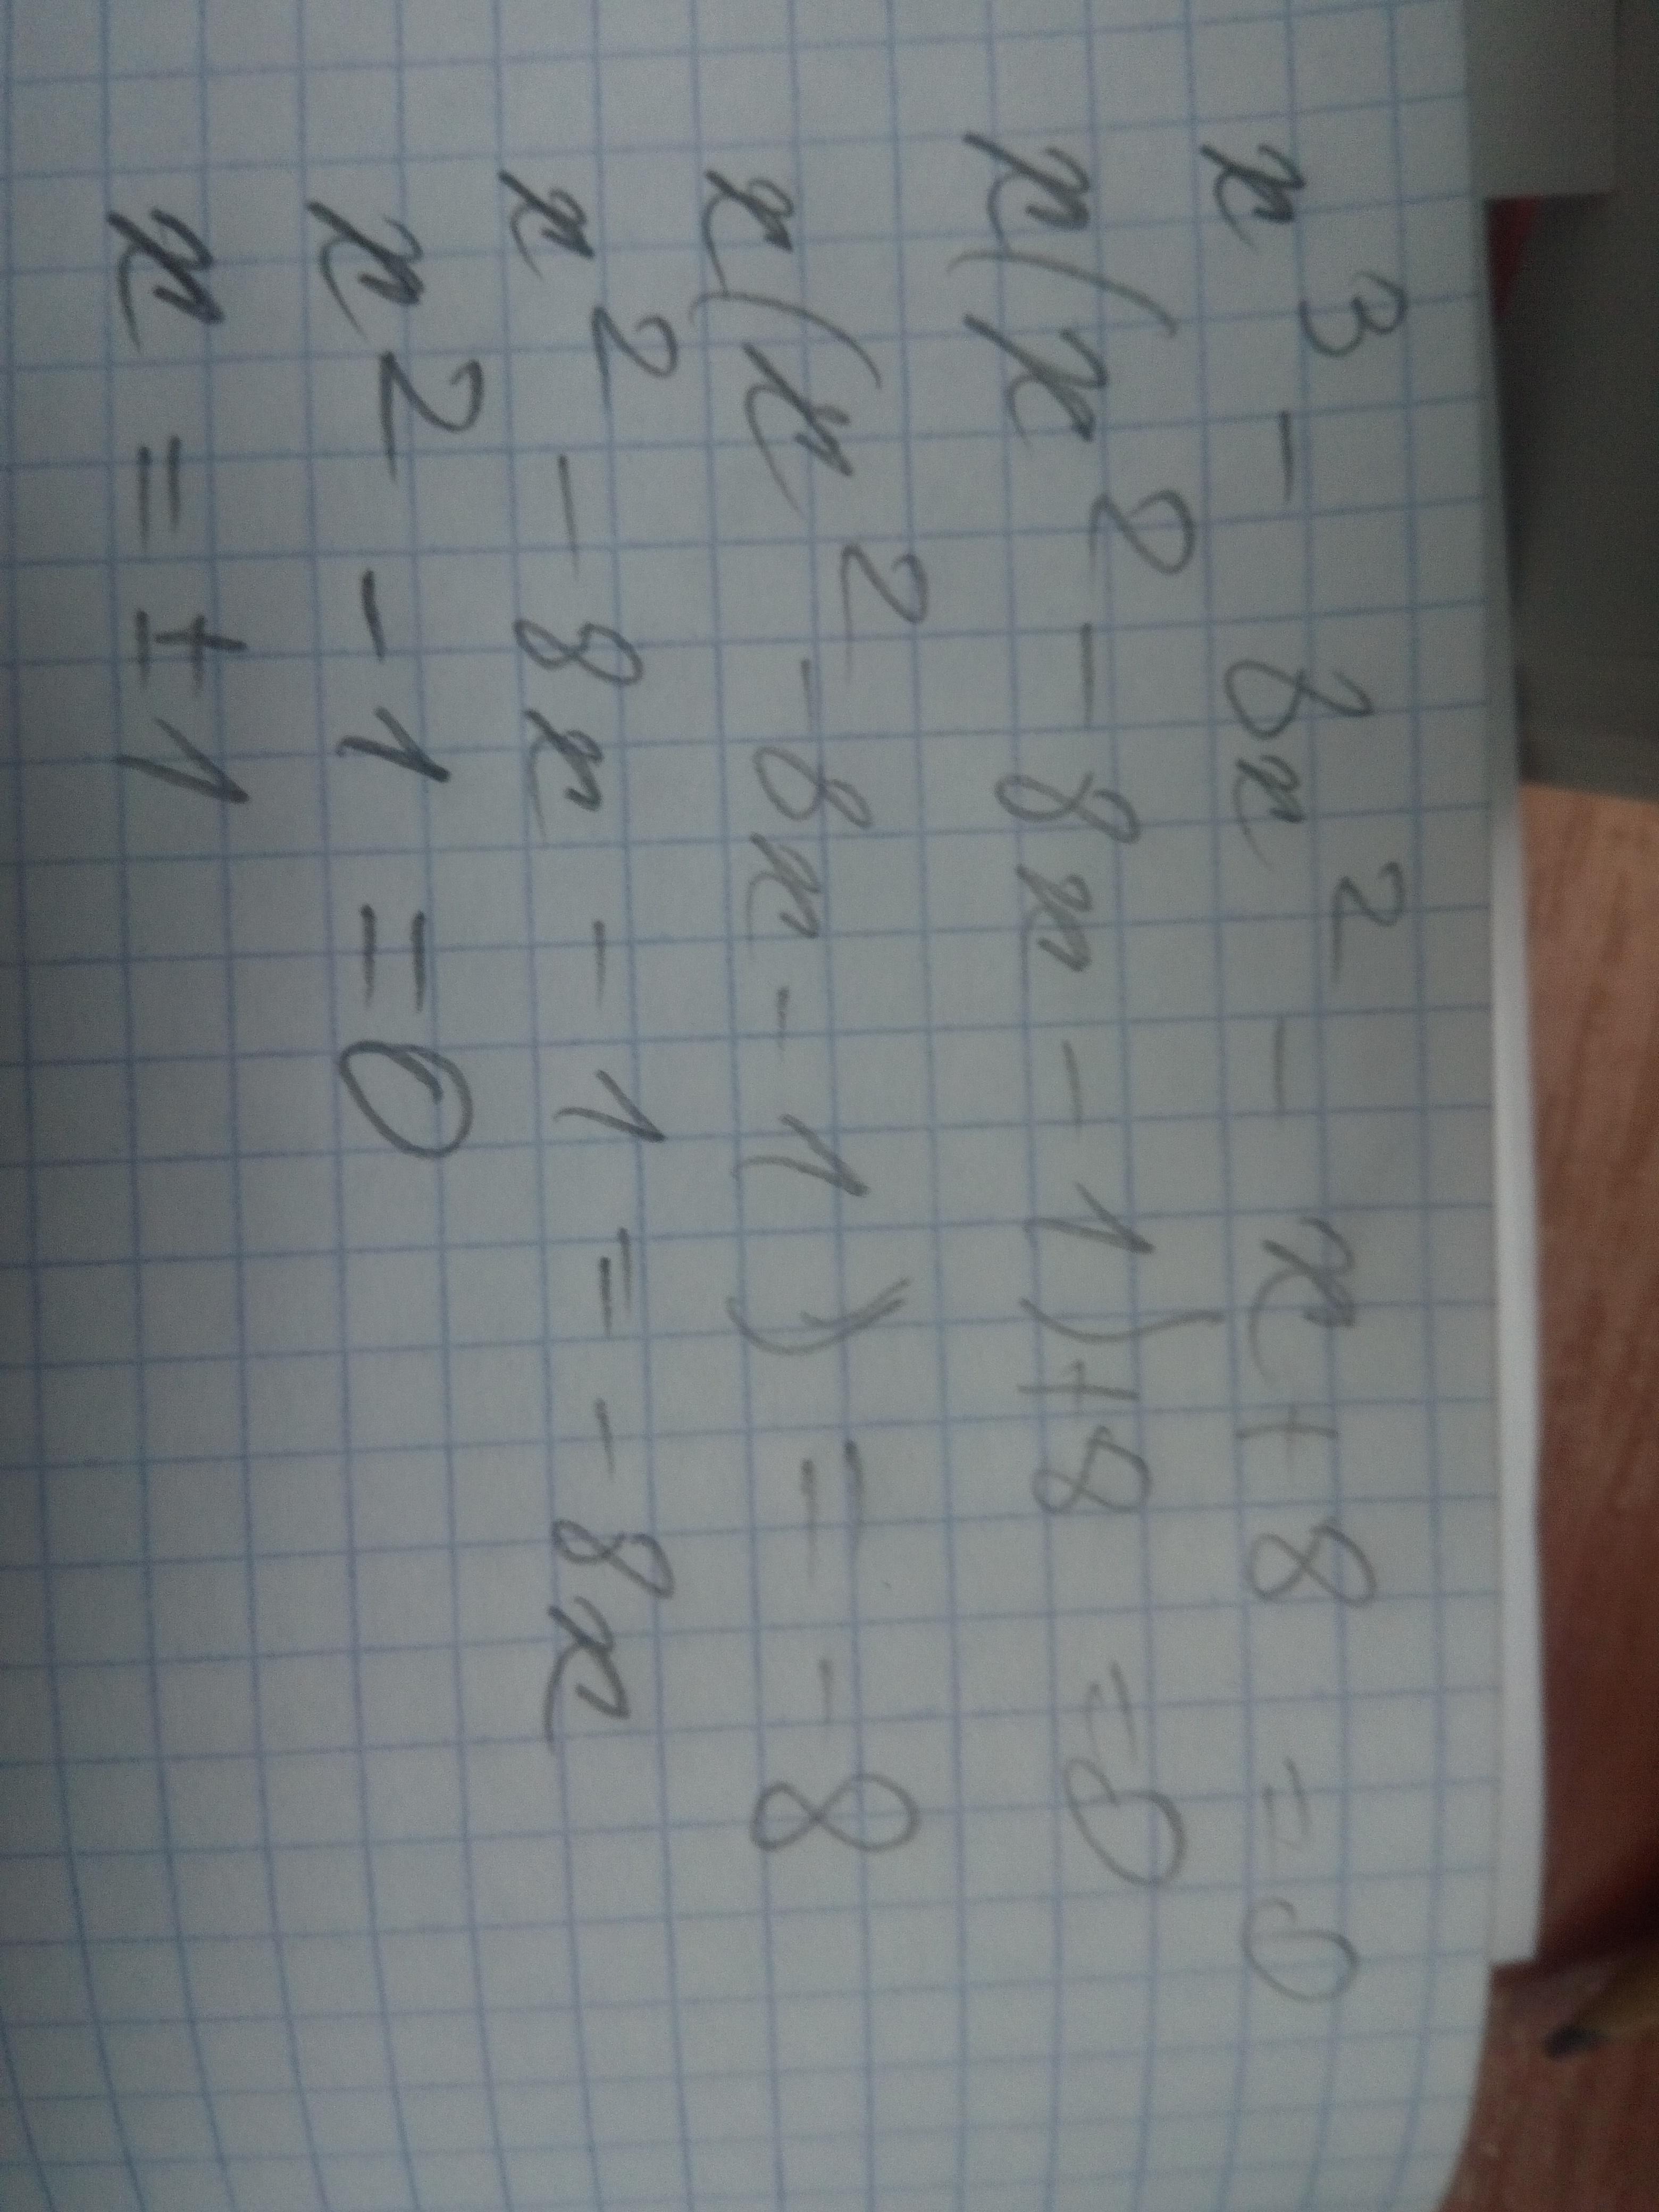 x³ - 8x² - x + 8 = 0
x(x² - 8x - 1) + 8 = 0
x(x² - 8x - 1) = -8
x² - 8x - 1 = -8x
x² - 1 = 0
x = ±1